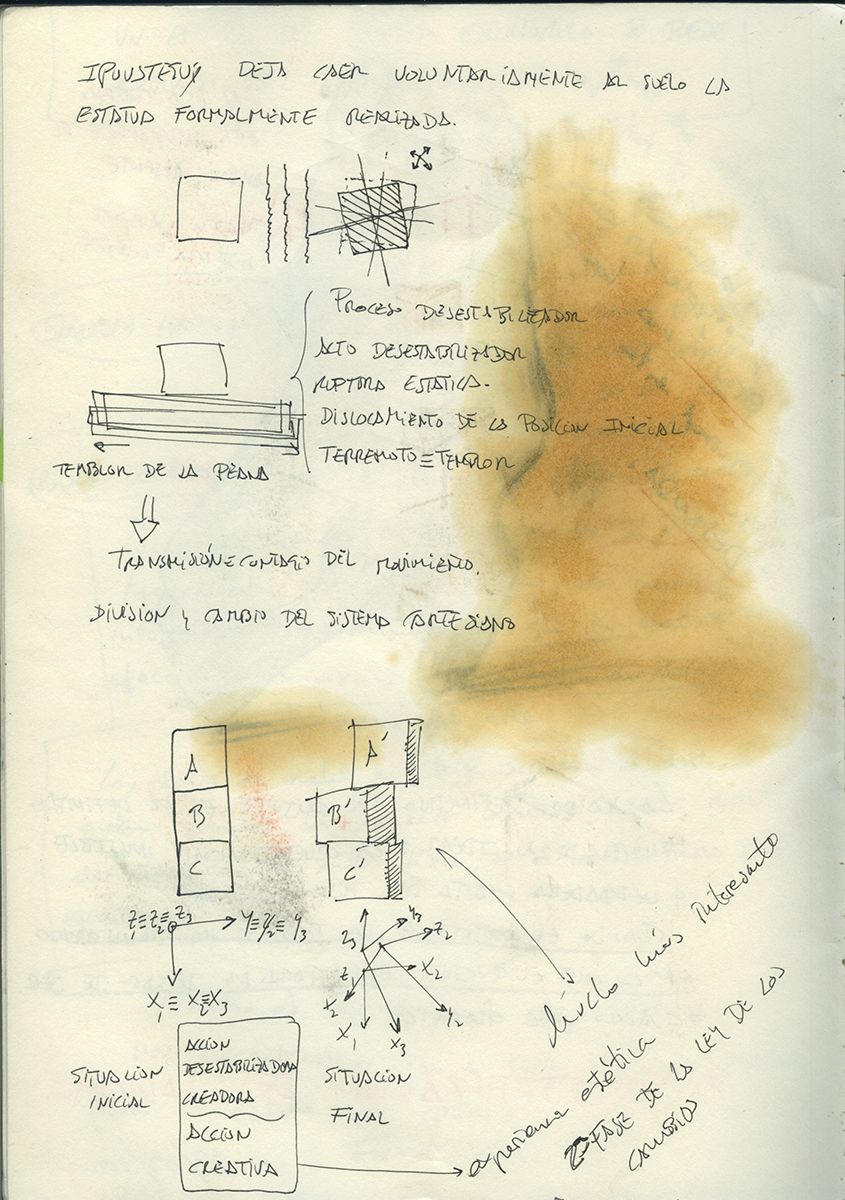 DEJA CAER VOLUNTARIAMENTE AL SUELO LA
ESTATUA FORMALMENTE REALIZADA.
PROCESO DESESTABILIZADOR
ACTO DESESTABILIZADOR
RUPTURA ESTATICA.
DISLOCAMIENTO DE LA POSICION INICIAL
TERREMOTO ≡ TEMBLOR
TEMBLOR DE LA PEANA
TRANSMISIÓN = CONTAGIO DEL MOVIMIENTO.
DIVISION Y CAMBIO DEL SISTEMA CARTESIANO
A
B
C
A'
B'
C'
Z₁≡Z₂≡Z₃
Y≡Y₂≡Y₃
X₁≡X₂≡X₃
Z₃
Y₃
Z₂
Z₁
X₂
X₁
X₃
Y₂
Mucho más interesante
SITUACION
INICIAL
ACCION
DESESTABILIZADORA
CREADORA
ACCION
CREATIVA
SITUACION
FINAL
experiencia estética
2ª FASE DE LA LEY DE LOS